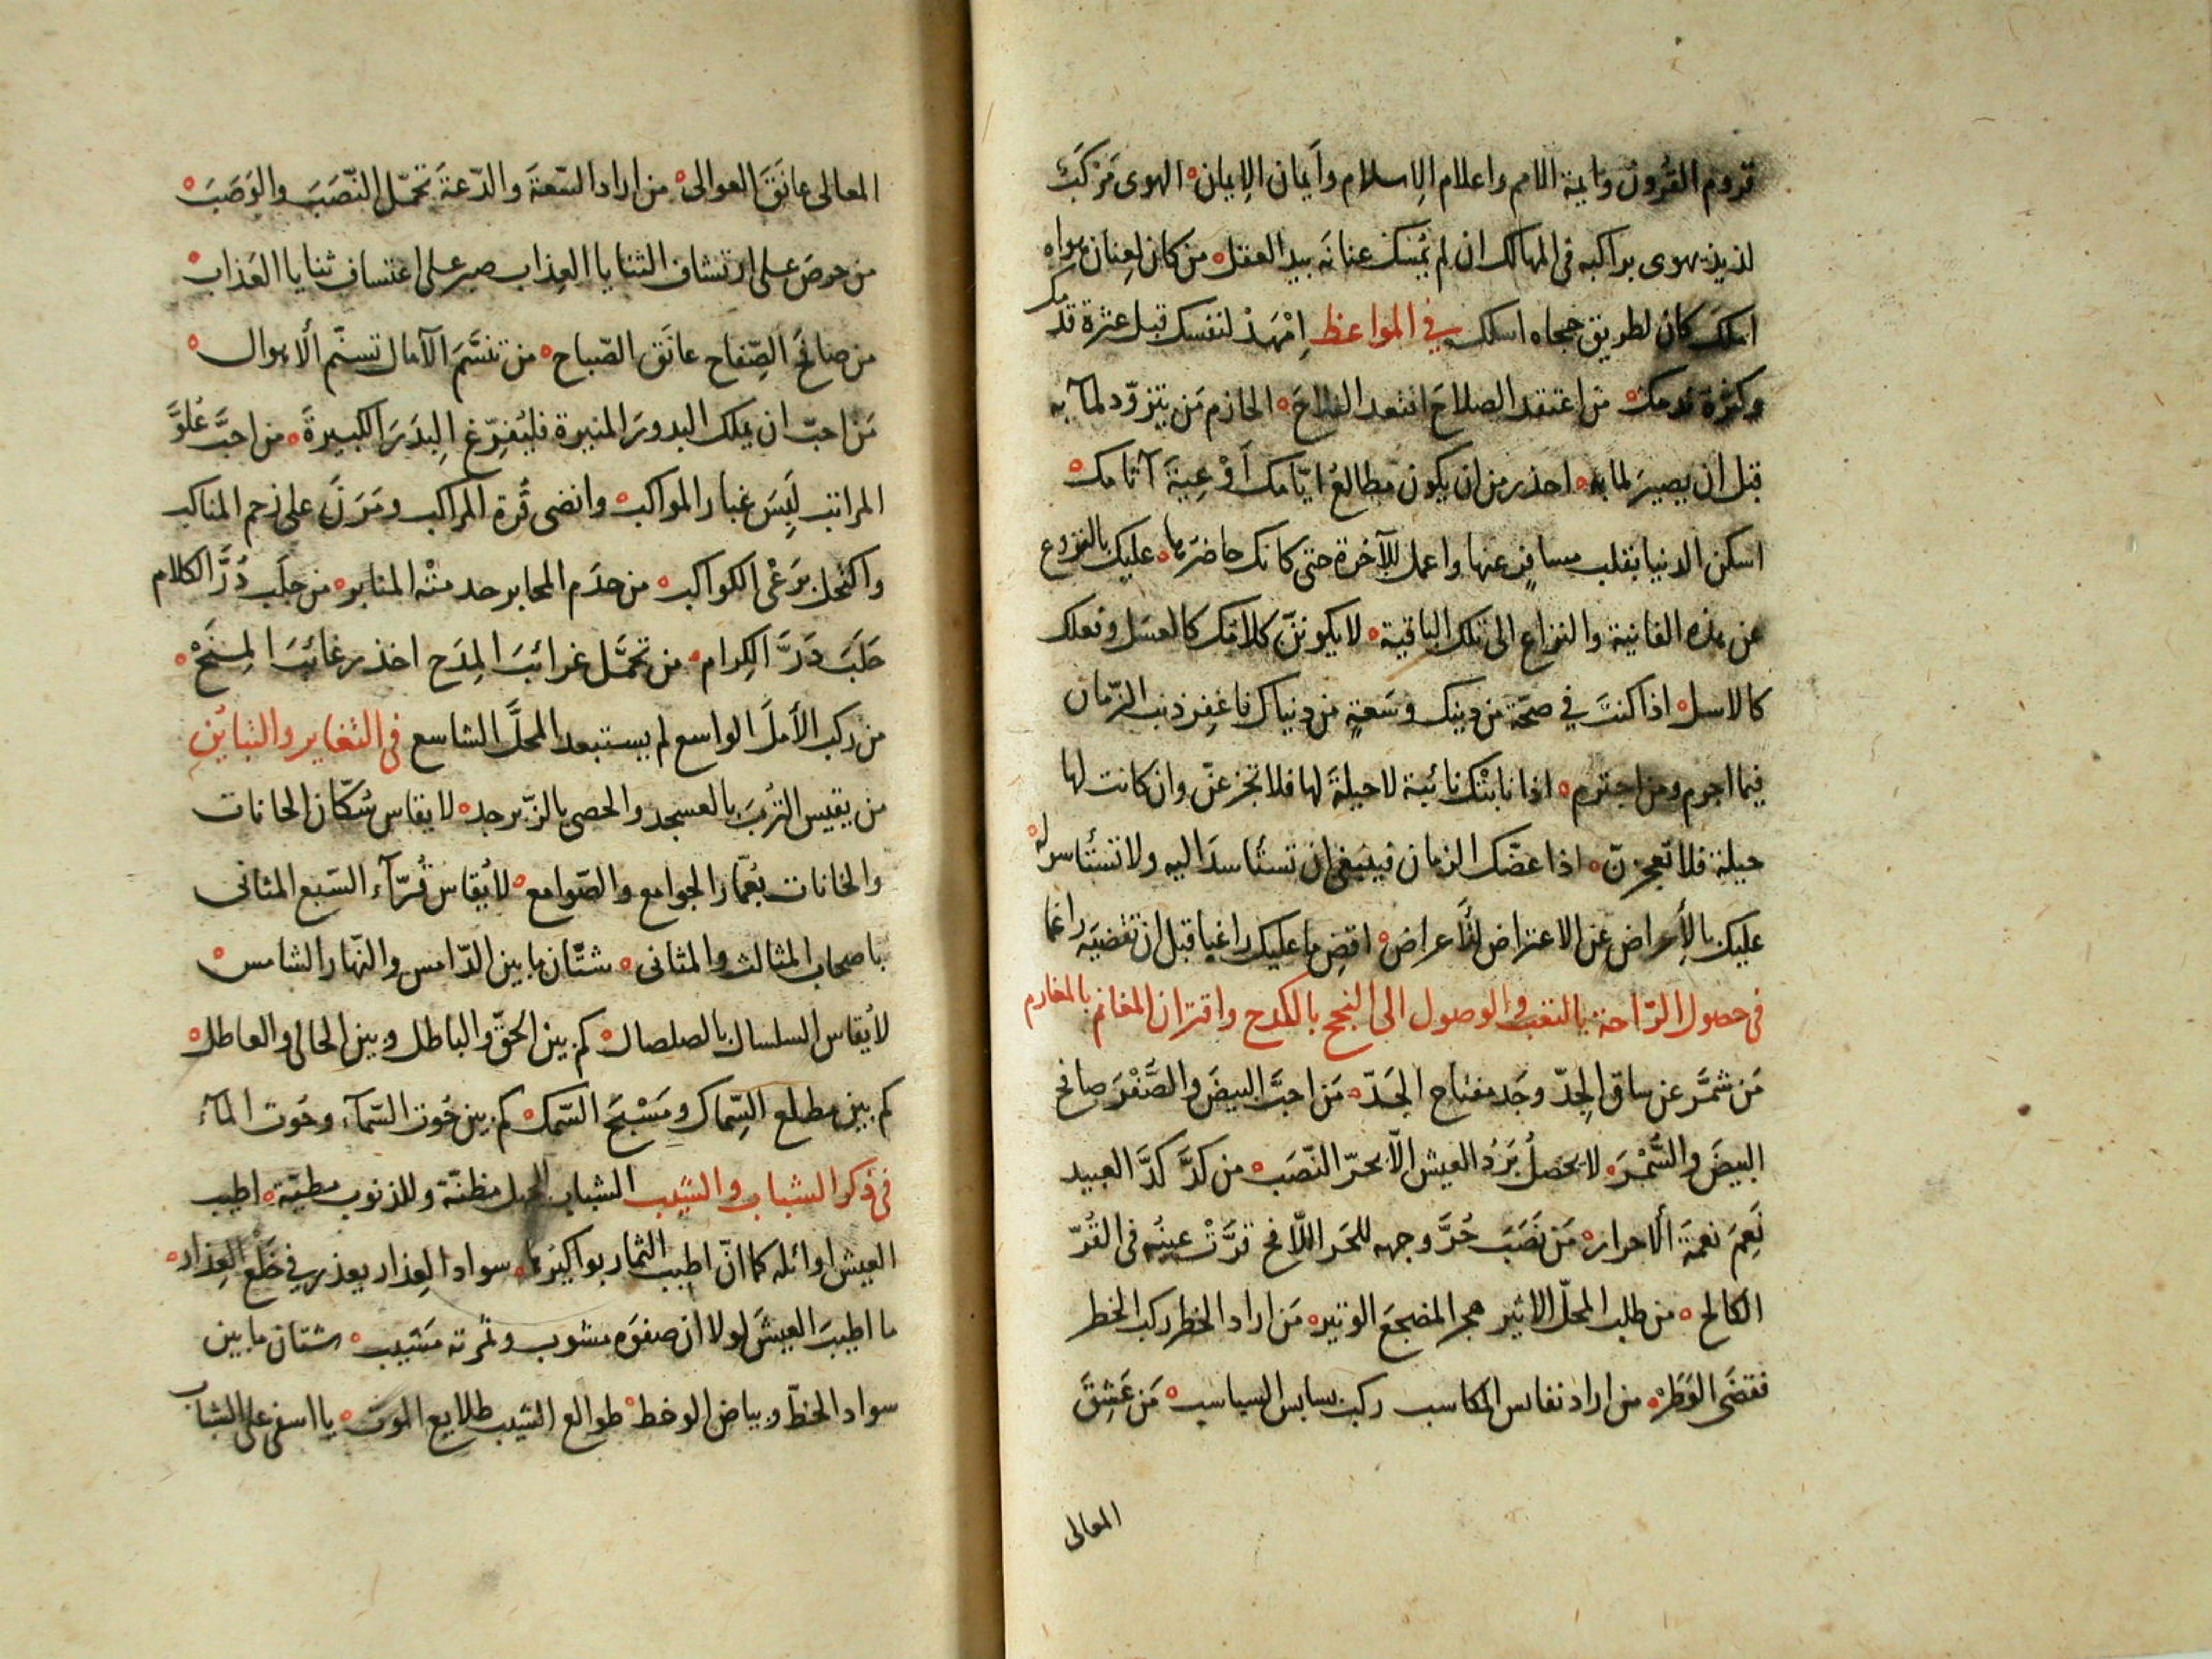 قروم القرون وأيمة الامم واعلام الإسلام وأيمان الإيمان ه الهوى مَرْكَبٌ
لذيذ يهوى براكبه في المهالك ان لم يُمسَك عنانَه بيد العقل ه من كان لعِنان هواه
املكَ كان لطريق حجاه اسلك في المواعظ اِمْهَدْ لنفسك قبل عثرة قدمك
وكثرة ندمك ه من اعتقد الصلاحَ افتعد الفلاحَ ه الحازم مَن يتزوّد لمآبه
قبل ان يصيرَ لمابه ه احذر من ان يكون مطالعُ ايّامك أَوْعِيَةَ آثامك ه
اسكن الدنيا بقلب مسافرٍ عنها واعمل للآخرة حتى كانك حاضرها ه عليك بالنزوع
عن هذه الفانية والنزاع الى تلك الباقية ه لا يكوننّ كلامُك كالعسَل وفعلك
كالاسل ه اذا كنتَ في صحّة من دينك وسَعةٍ من دنياك فاغفِر ذنب الزّمان
فيما اجرم ومن اجترم ه اذا نابَتْك نائبة لا حيلةَ لها فلا تجزعنّ وان كانت لها
حيلة فلا تعجزنّ ه اذا عضّك الزمان فينبغى ان تستأسدَ اليه ولا تستأسر له ه
عليك بالإعراض عن الاعتراض للأعراض ه اقضِ ما عليك راغبا قبل ان تقضيَه راغما
فى حصول الرّاحة بالتعب والوصول الى النجح بالكدح واقتران المغانم بالمغارم
مَن شمَّر عن ساق الجِدّ وجَد مفتاح الجَدّ ه مَن احبَّ البيضَ والصُّفْرَ صافح
البيضَ والسُّمْرَ ه لا يحصلُ بَرْدُ العيش الّا بحرّ النّصَب ه من كدَّ كدَّ العبيد
نَعِمَ نعمةَ الاحرار ه مَن نَصَبَ حُرَّ وجهه للحَر اللّافح قرَّتْ عينُه فى القُرّ
الكالح ه من طلب المحلّ الاثير هجر المضجعَ الوثير ه مَن اراد الخطر ركب الخطر
فقضَى الوَطَرْ ه من اراد نفائس المكاسب ركب بسابس السباسب ه مَن عَشِقَ
المعالى
المعالى عانَقَ العوالى ه من اراد السّعةَ والدّعةَ تحمّل النّصَبَ والوَصَبَ ه
من حرصَ على ارتشاف الثنايا العِذاب صبر على اعتساف ثنايا العَذاب ه
من صافحَ الصِّفاح عانَق الصّباح ه من تنسَّمَ الآمال تسنّم الأهوال ه
مَن احبّ ان يملك البدورَ المنيرة فليُفرِّغ البِدَرَ الكبيرةَ ه من احبَّ عُلوَّ
المراتب لَبِسَ غبار المواكب ه وانضى قُرة المراكب ومَرَنَ على زحم المناكب
واكتحل برَعْى الكواكب ه من خدَم المحابر خدمتْه المنابر ه من جلَب دُرَّ الكلام
حَلَبَ دَرَّ الكِرام ه من تحمَّل غرائبَ المِدَح اخذ رغائبَ المِنَحْ ه
من ركب الأملَ الواسع لم يستبعد المحلَّ الشاسع فى التغاير والتبائنِ
من يقيس التُربَ بالعسجد والحصى بالزّبرجد ه لا يقاس سُكّان الحانات
والخانات بعُمّار الجوامع والصّوامع ه لا يُقاس قُرّآء السّبع المثانى
باصحاب المثالث والمثانى ه شتّان ما بين الدّامس والنّهار الشامس ه
لا يُقاس السلسال بالصلصال ه كم بين الحقّ والباطل وبين الحالى والعاطل ه
كم بين مطلع السِّماك ومَسْبَح السّمك ه كم بين حُوت السّمآء وحُوت المآء
فى ذكر الشباب والشيب الشباب للجهل مظنّة وللذنوب مطيّة ه اطيب
العيش اوائله كما انّ اطيب الثمار بواكيرها ه سواد العِذار يعذر في خَلْع العِذار ه
ما اطيبَ العيشَ لولا ان صفوَه مشوب وثمرته مَشيب ه شتان ما بين
سواد الخطّ وبياض الوخط ه طوالع الشيب طلايع الموت ه يا اسفى على الشباب